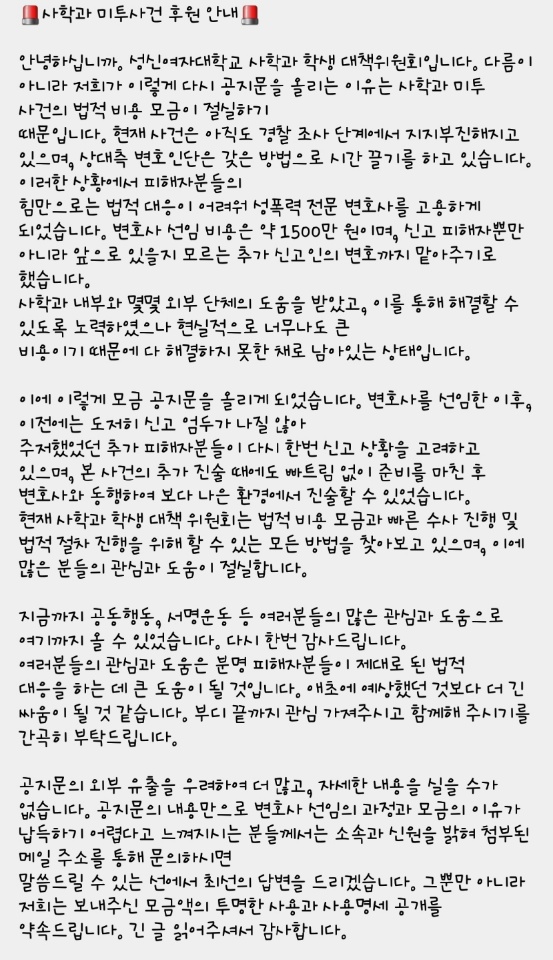 🚨사학과 미투사건 후원 안내🚨
안녕하십니까. 성신여자대학교 사학과 학생 대책위원회입니다. 다름이
아니라 저희가 이렇게 다시 공지문을 올리는 이유는 사학과 미투
사건의 법적 비용 모금이 절실하기
때문입니다. 현재 사건은 아직도 경찰 조사 단계에서 지지부진해지고
있으며, 상대측 변호인단은 갖은 방법으로 시간 끌기를 하고 있습니다.
이러한 상황에서 피해자분들의
힘만으로는 법적 대응이 어려워 성폭력 전문 변호사를 고용하게
되었습니다. 변호사 선임 비용은 약 1500만 원이며, 신고 피해자뿐만
아니라 앞으로 있을지 모르는 추가 신고인의 변호까지 맡아주기로
했습니다.
사학과 내부와 몇몇 외부 단체의 도움을 받았고, 이를 통해 해결할 수
있도록 노력하였으나 현실적으로 너무나도 큰
비용이기 때문에 다 해결하지 못한 채로 남아있는 상태입니다.
이에 이렇게 모금 공지문을 올리게 되었습니다. 변호사를 선임한 이후,
이전에는 도저히 신고 엄두가 나질 않아
주저했었던 추가 피해자분들이 다시 한번 신고 상황을 고려하고
있으며, 본 사건의 추가 진술 때에도 빠트림 없이 준비를 마친 후
변호사와 동행하여 보다 나은 환경에서 진술할 수 있었습니다.
현재 사학과 학생 대책 위원회는 법적 비용 모금과 빠른 수사 진행 및
법적 절차 진행을 위해 할 수 있는 모든 방법을 찾아보고 있으며, 이에
많은 분들의 관심과 도움이 절실합니다.
지금까지 공동행동, 서명운동 등 여러분들의 많은 관심과 도움으로
여기까지 올 수 있었습니다. 다시 한번 감사드립니다.
여러분들의 관심과 도움은 분명 피해자분들이 제대로 된 법적
대응을 하는 데 큰 도움이 될 것입니다. 애초에 예상했던 것보다 더 긴
싸움이 될 것 같습니다. 부디 끝까지 관심 가져주시고 함께해 주시기를
간곡히 부탁드립니다.
공지문의 외부 유출을 우려하여 더 많고, 자세한 내용을 실을 수가
없습니다. 공지문의 내용만으로 변호사 선임의 과정과 모금의 이유가
납득하기 어렵다고 느껴지시는 분들께서는 소속과 신원을 밝혀 첨부된
메일 주소를 통해 문의하시면
말씀드릴 수 있는 선에서 최선의 답변을 드리겠습니다. 그뿐만 아니라
저희는 보내주신 모금액의 투명한 사용과 사용명세 공개를
약속드립니다. 긴 글 읽어주셔서 감사합니다.